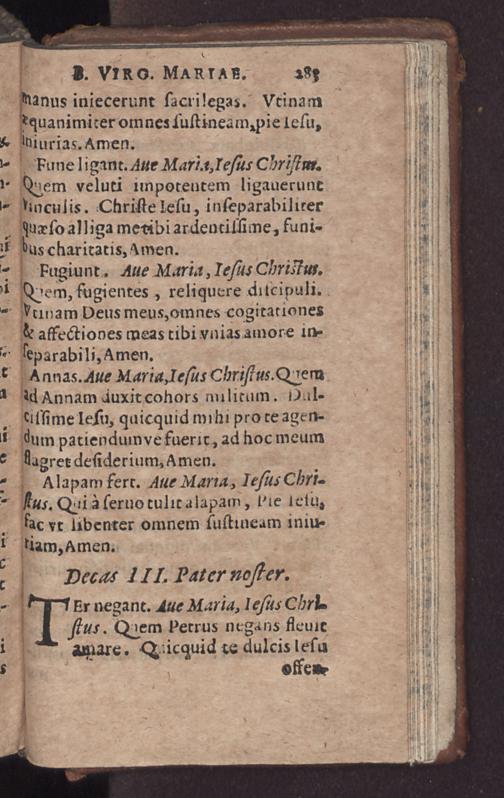 B. VIRG. MARIAE. 285
manus iniecerunt sacrilegas. Vtinam
æquanimiter omnes sustineam, pie Iesu,
iniurias. Amen.
Fune ligant. Aue Maria, Iesus Christus.
Quem veluti impotentem ligauerunt
vinculis. Christe Iesu, inseparabiliter
quæso alliga me tibi ardentissime, funi-
bus charitatis, Amen.
Fugiunt. Aue Maria, Iesus Christus.
Quem, fugientes, reliquere discipuli.
Vtinam Deus meus, omnes cogitationes
& affectiones meas tibi vnias amore in-
separabili, Amen.
Annas. Aue Maria, Iesus Christus. Quem
ad Annam duxit cohors militum. Dul-
cissime Iesu, quicquid mihi pro te agen-
dum patiendumve fuerit, ad hoc meum
flagret desiderium, Amen.
Alapam fert. Aue Maria, Iesus Chri-
stus. Qui à seruo tulit alapam, Pie Iesu,
fac vt libenter omnem sustineam iniu-
riam, Amen.
Decas III. Pater noster.
TEr negant. Aue Maria, Iesus Chri-
stus. Quem Petrus negans fleuit
amare. Quicquid te dulcis Iesu
offen-